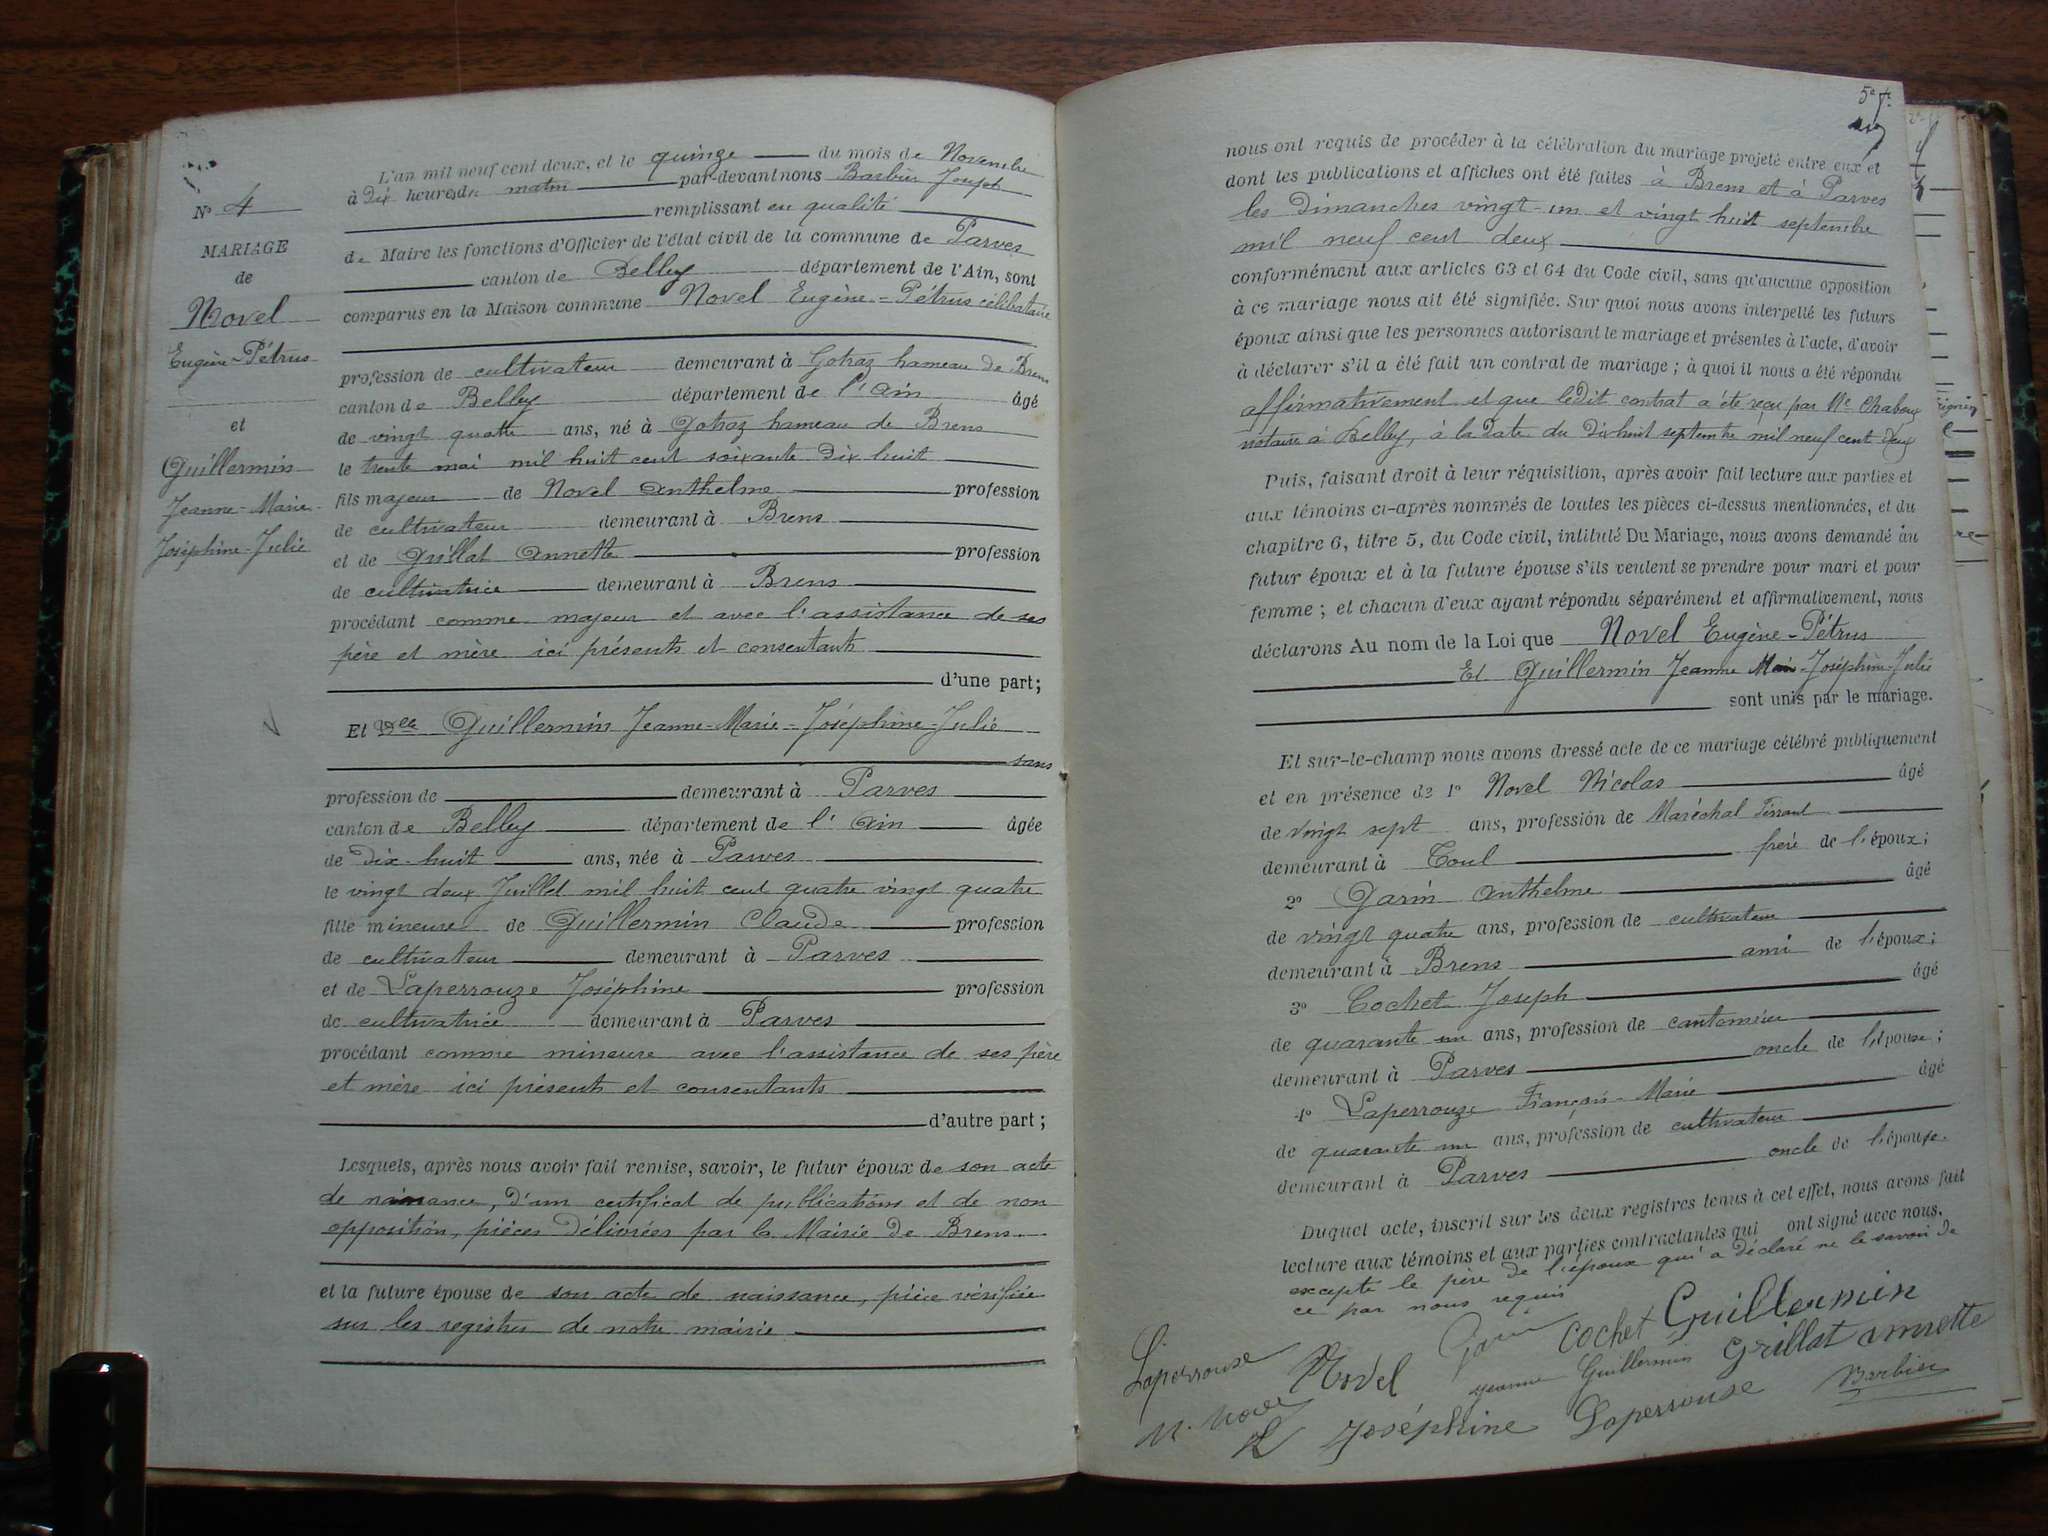 N° 4
MARIAGE
de
Novel
Eugène-Pétrus
et
Guillermin
Jeanne-Marie
Joséphine-Julie
L'an mil neuf cent deux, et le quinze du mois de Novembre
à Dix heures du matin par-devant nous Barbier Joseph
remplissant en qualité
de Maire les fonctions d'Officier de l'état civil de la commune de Parves
canton de Belley département de l'Ain, sont
comparus en la Maison commune Novel Eugène-Pétrus célibataire
profession de cultivateur demeurant à Gohaz hameau de Brens
canton de Belley département de l'Ain âgé
de vingt quatre ans, né à Gohaz hameau de Brens
le trente mai mil huit cent soixante dix huit
fils majeur de Novel Anthelme profession
de cultivateur demeurant à Brens
et de Grillat Annette profession
de cultivatrice demeurant à Brens
procédant comme majeur et avec l'assistance de ses
père et mère ici présents et consentants
d'une part;
Et Delle Guillermin Jeanne-Marie-Joséphine-Julie
sans
profession de demeurant à Parves
canton de Belley département de l'Ain âgée
de dix-huit ans, née à Parves
le vingt deux Juillet mil huit cent quatre vingt quatre
fille mineure de Guillermin Claude profession
de cultivateur demeurant à Parves
et de Laperrouze Joséphine profession
de cultivatrice demeurant à Parves
procédant comme mineure avec l'assistance de ses père
et mère ici présents et consentants
d'autre part;
Lesquels, après nous avoir fait remise, savoir, le futur époux de son acte
de naissance, d'un certificat de publications et de non
opposition, pièces délivrées par la Mairie de Brens
et la future épouse de son acte de naissance, pièce vérifiée
sur les registres de notre mairie
nous ont requis de procéder à la célébration du mariage projeté entre eux et
dont les publications et affiches ont été faites à Brens et à Parves
les Dimanches vingt-un et vingt huit septembre
mil neuf cent deux
conformément aux articles 63 et 64 du Code civil, sans qu'aucune opposition
à ce mariage nous ait été signifiée. Sur quoi nous avons interpellé les futurs
époux ainsi que les personnes autorisant le mariage et présentes à l'acte, d'avoir
à déclarer s'il a été fait un contrat de mariage; à quoi il nous a été répondu
affirmativement et que ledit contrat a été reçu par Me Chaboux
notaire à Belley, à la date du dix huit septembre mil neuf cent deux
Puis, faisant droit à leur réquisition, après avoir fait lecture aux parties et
aux témoins ci-après nommés de toutes les pièces ci-dessus mentionnées, et du
chapitre 6, titre 5, du Code civil, intitulé Du Mariage, nous avons demandé au
futur époux et à la future épouse s'ils veulent se prendre pour mari et pour
femme; et chacun d'eux ayant répondu séparément et affirmativement, nous
déclarons Au nom de la Loi que Novel Eugène-Pétrus
Et Guillermin Jeanne Marie-Joséphine-Julie
sont unis par le mariage.
Et sur-le-champ nous avons dressé acte de ce mariage célébré publiquement
et en présence de 1° Novel Nicolas âgé
de vingt sept ans, profession de Maréchal Ferrant
demeurant à Toul frère de l'époux;
2° Garin Anthelme âgé
de vingt quatre ans, profession de cultivateur
demeurant à Brens ami de l'époux;
3° Cochet Joseph âgé
de quarante un ans, profession de cantonnier
demeurant à Parves oncle de l'épouse;
4° Laperrouze François-Marie âgé
de quarante un ans, profession de cultivateur
demeurant à Parves oncle de l'épouse.
Duquel acte, inscrit sur les deux registres tenus à cet effet, nous avons fait
lecture aux témoins et aux parties contractantes qui ont signé avec nous,
excepté le père de l'époux qui a déclaré ne le savoir de
ce par nous requis
Laperrouse Novel Garin Cochet Guillermin
Jeanne Guillermin Grillat annette
N. Novel Joséphine Laperrouse Barbier